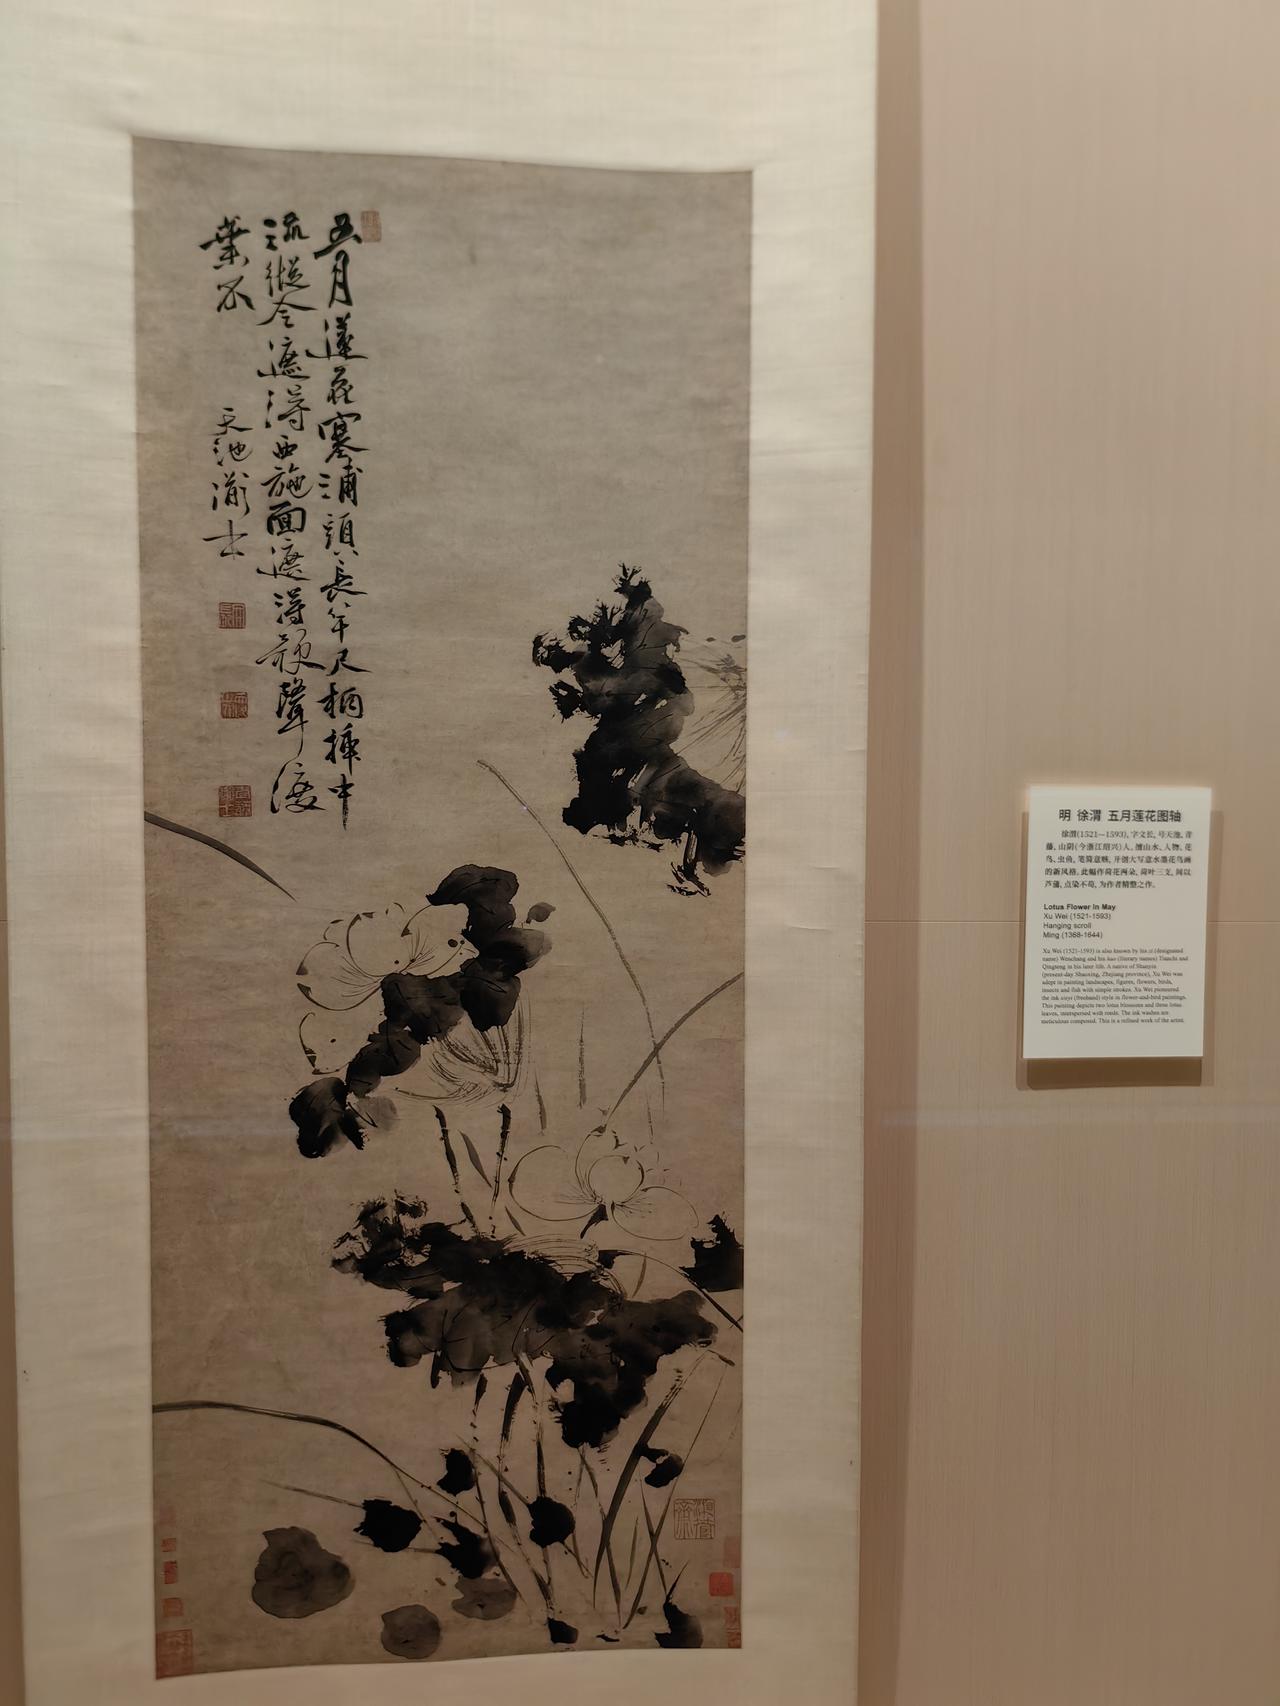 五月蓮花塞浦頭長年尺柄插中
流縱令遮得西施面遮得歌聲渡
葉不
天池漱士
明 徐渭 五月莲花图轴
徐渭(1521—1593)，字文长，号天池、青
藤，山阴(今浙江绍兴)人。擅山水、人物、花
鸟、虫鱼，笔简意赅，开创大写意水墨花鸟画
的新风格。此幅作荷花两朵，荷叶三支，间以
芦蒲，点染不苟，为作者精整之作。
Lotus Flower In May
Xu Wei (1521-1593)
Hanging scroll
Ming (1368-1644)
Xu Wei (1521-1593) is also known by his zi (designated
name) Wenchang and his hao (literary names) Tianchi and
Qingteng in his later life. A native of Shanyin
(present-day Shaoxing, Zhejiang province), Xu Wei was
adept in painting landscapes, figures, flowers, birds,
insects and fish with simple strokes. Xu Wei pioneered
the ink xieyi (freehand) style in flower-and-bird paintings.
This painting depicts two lotus blossoms and three lotus
leaves, interspersed with reeds. The ink washes are
meticulous composed. This is a refined work of the artist.